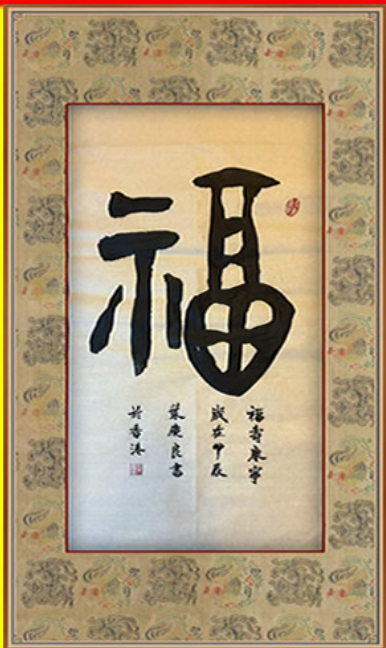 福
福壽康寧
歲在甲辰
葉慶良書
於香港